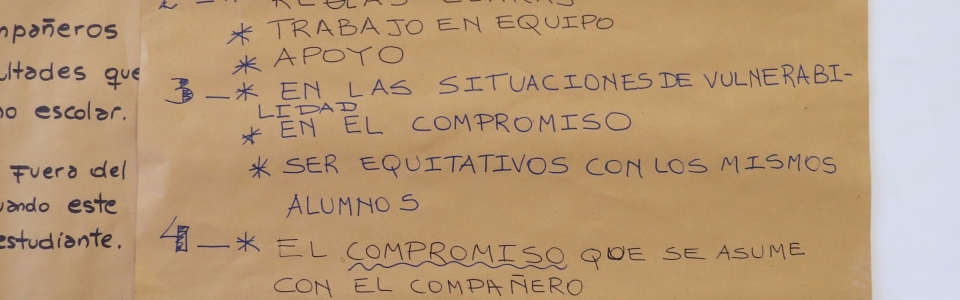 mpañeros
ultades que
no escolar.
Fuera del
uando este
estudiante.
2 - * REGLAS CLARAS
* TRABAJO EN EQUIPO
* APOYO
3 - * EN LAS SITUACIONES DE VULNERABI-
LIDAD
* EN EL COMPROMISO
* SER EQUITATIVOS CON LOS MISMOS
ALUMNOS
4 - * EL COMPROMISO QUE SE ASUME
CON EL COMPAÑERO